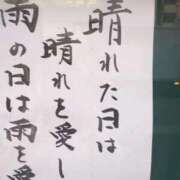 晴れた日は
晴れを愛し
雨の日は雨を愛